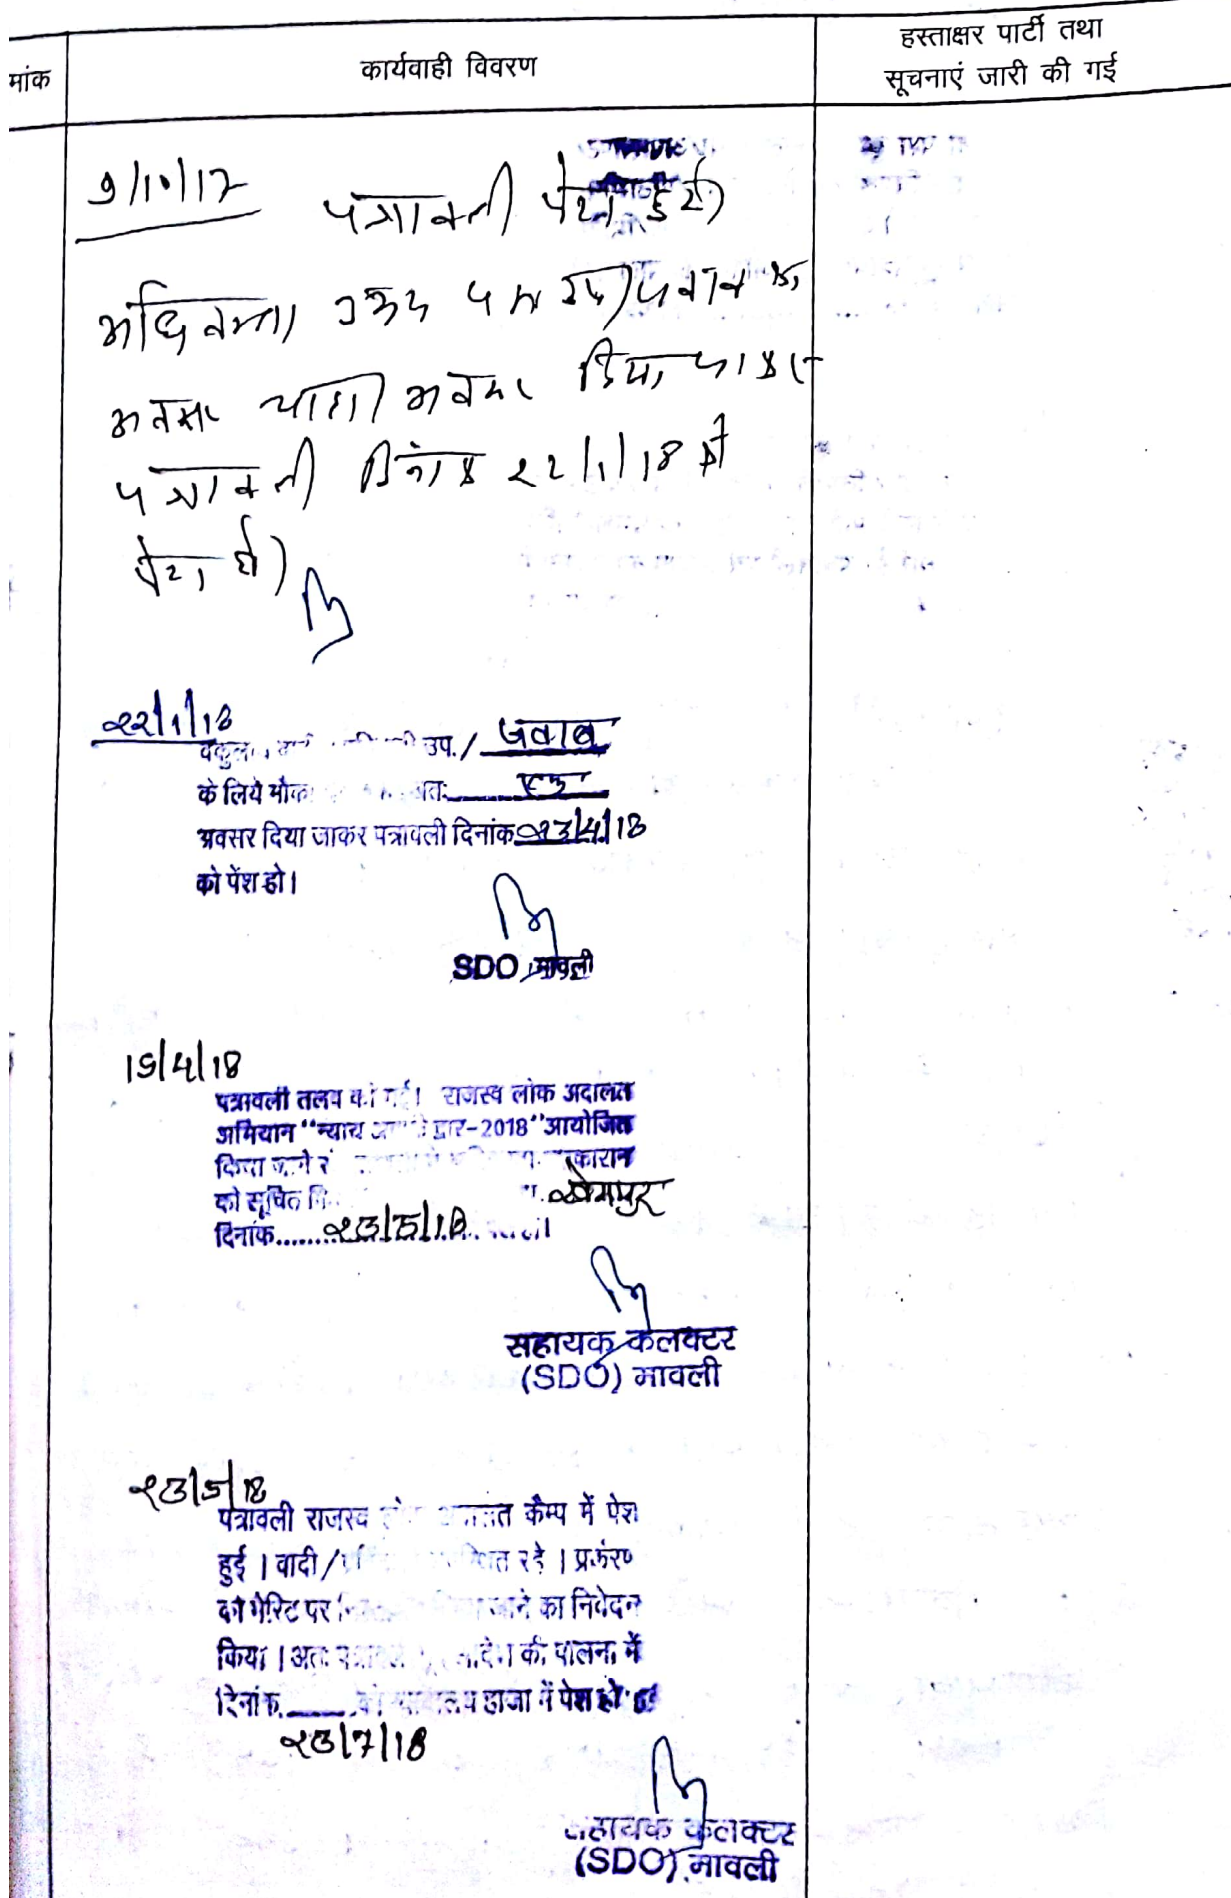 मांक
कार्यवाही विवरण
हस्ताक्षर पार्टी तथा
सूचनाएं जारी की गई
9/10/17
पत्रावली पेश हुयी
अधिवक्ता
अवसर चाहा अवसर दिया जाकर
पत्रावली दिनांक 22/1/18 को
पेश हो
22/1/18
उप./ जवाब
के लिये मौका अतः एक
अवसर दिया जाकर पत्रावली दिनांक 23/4/18
को पेंश हो।
SDO मावली
19/4/18
पत्रावली तलब की गई। राजस्व लोक अदालत
अभियान "न्याय आपके द्वार-2018" आयोजित
किया जाने
को सूचित खेमपुर
दिनांक........23/5/18
सहायक कलक्टर
(SDO) मावली
23/5/18
पत्रावली राजस्व लोक अदालत कैम्प में पेश
हुई। वादी/ रहे। प्रकरण
को मेरिट पर जाने का निवेदन
किया। अतः की पालना में
दिनांक को न्यायालय हाजा में पेश हो
23/7/18
सहायक कलक्टर
(SDO) मावली